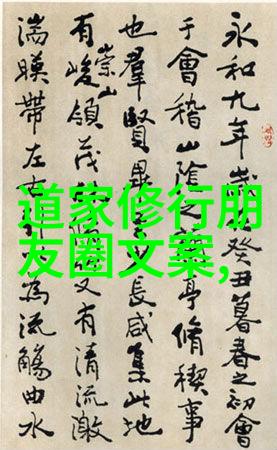 道家修行朋
友圈文案,
永和九年癸丑暮春之初會
于會稽山陰之亭脩稧事
也羣賢畢長咸集此地
有崇山峻領茂又有清流激
湍暎帶左右為流觴曲水